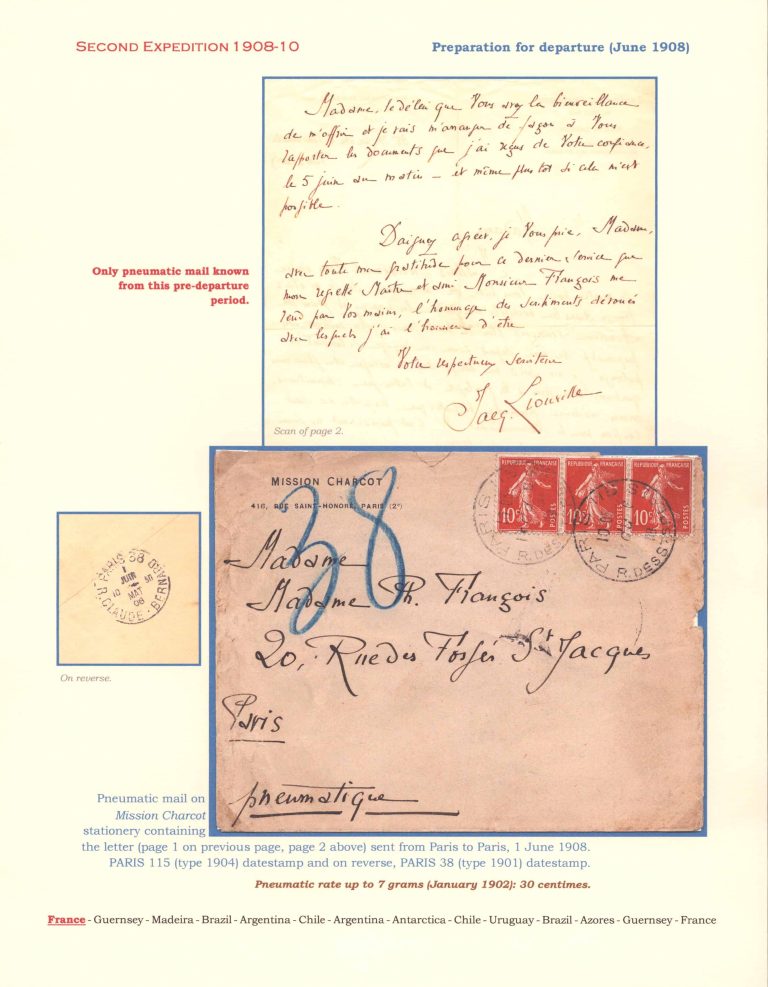 SECOND EXPEDITION 1908-10
Preparation for departure (June 1908)
Madame, le délai que Vous avez la bienveillance
de m'offrir et je vais m'arranger de façon à Vous
rapporter les documents que j'ai reçus de Votre confiance,
le 5 juin au matin – et même plus tôt si cela m'est
possible.
Daignez agréer, je Vous prie, Madame,
avec toute ma gratitude pour ce dernier service que
mon regretté Maître et ami Monsieur François me
rend par Vos mains, l'hommage des sentiments dévoués
avec lesquels j'ai l'honneur d'être
Votre respectueux serviteur
Jacq. Liouville
Scan of page 2.
Only pneumatic mail known
from this pre-departure
period.
MISSION CHARCOT
416, RUE SAINT-HONORÉ, PARIS (2ᵉ)
38
REPUBLIQUE FRANÇAISE
10c
POSTES
REPUBLIQUE FRANÇAISE
10c
POSTES
REPUBLIQUE FRANÇAISE
10c
POSTES
PARIS
R. DES
PARIS
R. DESS
Madame
Madame Th. François
20, Rue des Fossés St Jacques
Paris
pneumatique
PARIS 38
1
JUIN
10 50
MAT
08
R. CLAUDE - BERNARD
On reverse.
Pneumatic mail on
Mission Charcot
stationery containing
the letter (page 1 on previous page, page 2 above) sent from Paris to Paris, 1 June 1908.
PARIS 115 (type 1904) datestamp and on reverse, PARIS 38 (type 1901) datestamp.
Pneumatic rate up to 7 grams (January 1902): 30 centimes.
France - Guernsey - Madeira - Brazil - Argentina - Chile - Argentina - Antarctica - Chile - Uruguay - Brazil - Azores - Guernsey - France